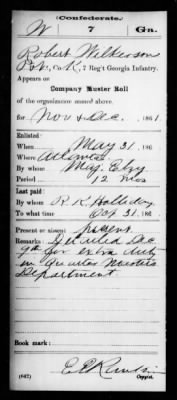 Confederate.
W 7 Ga.
Robert Wilkerson
Pvt, Co. K, 7 Reg't Georgia Infantry.
Appears on
Company Muster Roll
of the organization named above,
for Nov & Dec, 1861
Enlisted:
When May 31, 186
Where Atlanta
By whom Maj. Eby
Period 12 mos
Last paid:
By whom R. K. Holliday
To what time Oct 31, 186
Present or absent present
Remarks: Detailed Dec
9th for extra duty
in Quarter Masters
Department
Book mark:
(642)
Copyist.